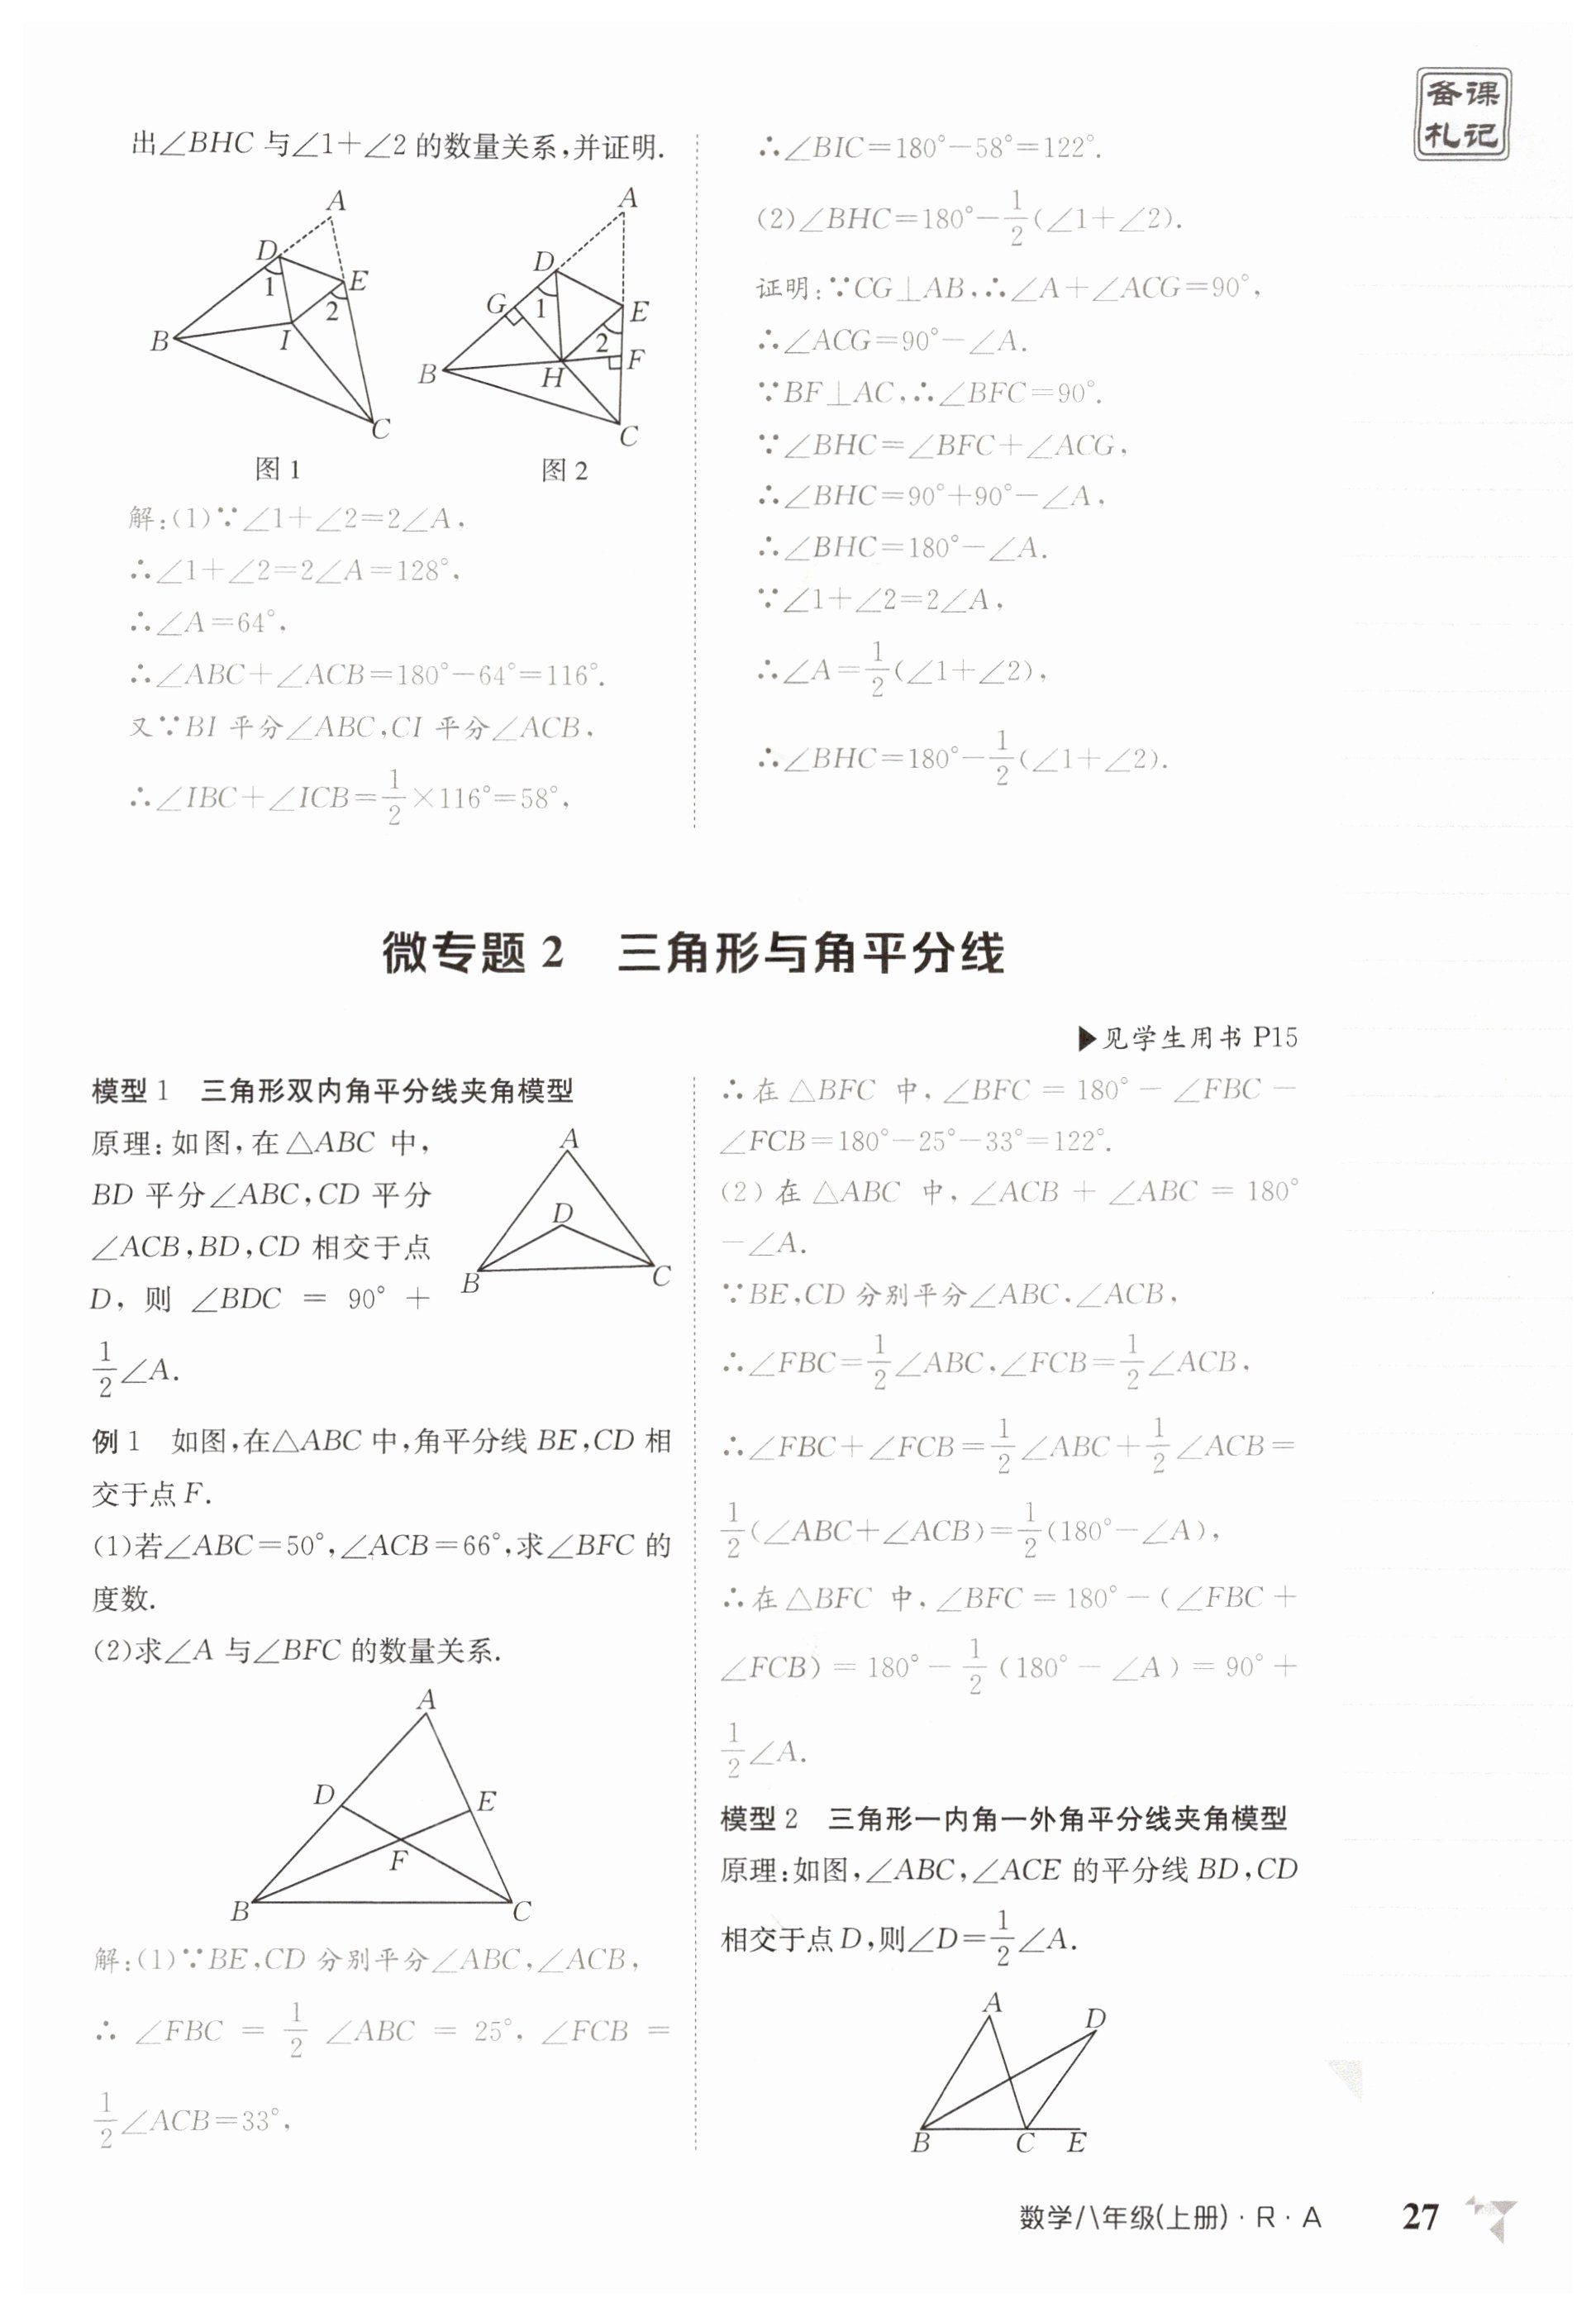 备课
札记
出∠BHC 与∠1+∠2 的数量关系,并证明.
A
D
1
E
2
B
I
C
图 1
A
D
G
1
E
2
F
B
H
C
图 2
解:(1)∵∠1+∠2=2∠A,
∴∠1+∠2=2∠A=128°,
∴∠A=64°,
∴∠ABC+∠ACB=180°-64°=116°.
又∵BI 平分∠ABC,CI 平分∠ACB,
∴∠IBC+∠ICB=1/2×116°=58°,
∴∠BIC=180°-58°=122°.
(2)∠BHC=180°-1/2(∠1+∠2).
证明:∵CG⊥AB,∴∠A+∠ACG=90°,
∴∠ACG=90°-∠A.
∵BF⊥AC,∴∠BFC=90°.
∵∠BHC=∠BFC+∠ACG,
∴∠BHC=90°+90°-∠A,
∴∠BHC=180°-∠A.
∵∠1+∠2=2∠A,
∴∠A=1/2(∠1+∠2),
∴∠BHC=180°-1/2(∠1+∠2).
微专题 2 三角形与角平分线
▶见学生用书 P15
模型 1 三角形双内角平分线夹角模型
原理:如图,在△ABC 中,
BD 平分∠ABC,CD 平分
∠ACB,BD,CD 相交于点
D, 则 ∠BDC = 90° +
1/2∠A.
A
D
B
C
例 1 如图,在△ABC 中,角平分线 BE,CD 相
交于点 F.
(1)若∠ABC=50°,∠ACB=66°,求∠BFC 的
度数.
(2)求∠A 与∠BFC 的数量关系.
A
D
E
F
B
C
解:(1)∵BE,CD 分别平分∠ABC,∠ACB,
∴ ∠FBC = 1/2 ∠ABC = 25°, ∠FCB =
1/2∠ACB=33°,
∴在 △BFC 中, ∠BFC = 180° - ∠FBC -
∠FCB=180°-25°-33°=122°.
(2) 在 △ABC 中, ∠ACB + ∠ABC = 180°
-∠A.
∵BE,CD 分别平分∠ABC,∠ACB,
∴∠FBC=1/2∠ABC,∠FCB=1/2∠ACB,
∴∠FBC+∠FCB=1/2∠ABC+1/2∠ACB=
1/2(∠ABC+∠ACB)=1/2(180°-∠A),
∴在 △BFC 中, ∠BFC = 180° - (∠FBC +
∠FCB) = 180° - 1/2 (180° - ∠A) = 90° +
1/2∠A.
模型 2 三角形一内角一外角平分线夹角模型
原理:如图,∠ABC,∠ACE 的平分线 BD,CD
相交于点 D,则∠D=1/2∠A.
A
D
B
C
E
数学/八年级(上册)·R·A 27